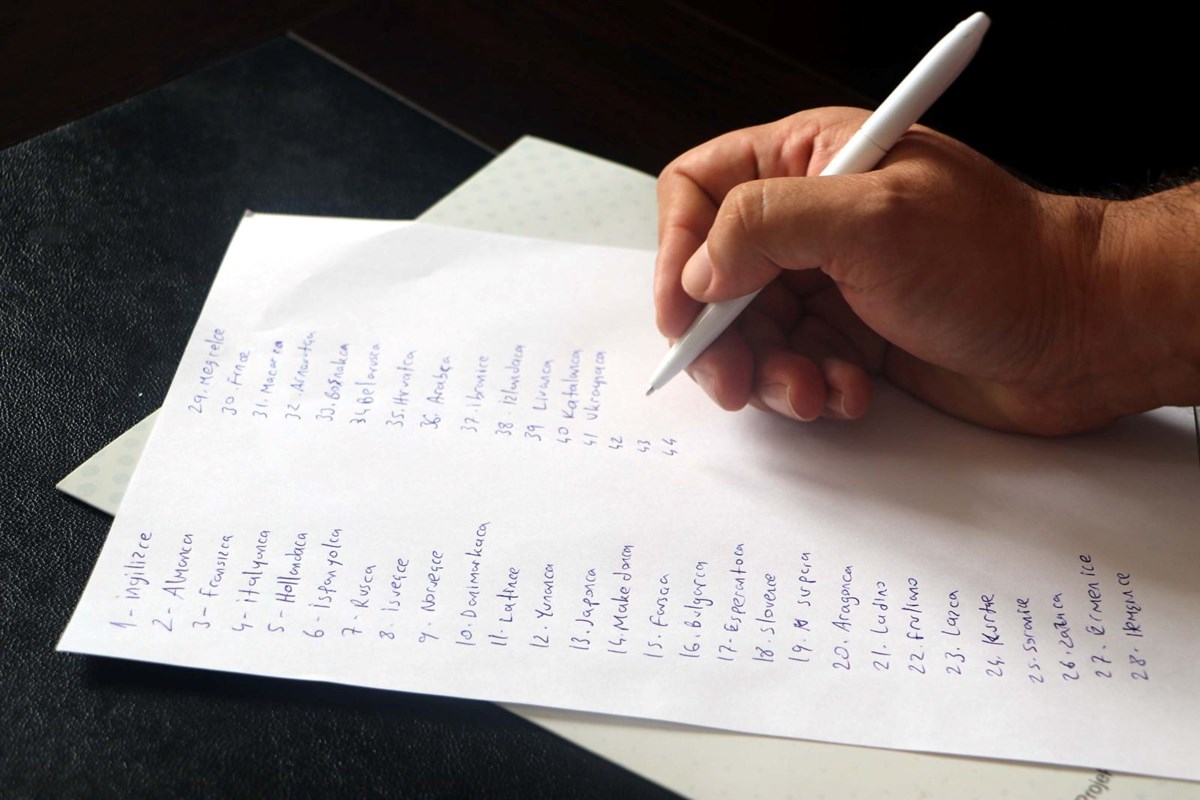 1- ingilizce
2- Almanca
3- Fransızca
4- italyanca
5- Hollandaca
6- İspanyolca
7. Rusca
8. isveççe
9. Norveççe
10. Danimarkaca
11. Latince
12. Yunanca
13. Japonca
14. Makedonca
15. Farsca
16. Bulgarca
17. Esperantoca
18. Slovence
19. Supera
20. Aragonca
21. Ladino
22. Friulano
23. Lazca
24. Kürtçe
25. Soranice
26. Zazaca
27. Ermenice
28.
29. Megrelce
30. Fince
31. Macarca
32. Arnavutça
33. Boşnakca
34 Belarusca
35. Hırvatca
36. Arabça
37. ibranice
38. İzlandaca
39 Livanca
40 Katalanca
41 Ukraynaca
42
43
44
Projer